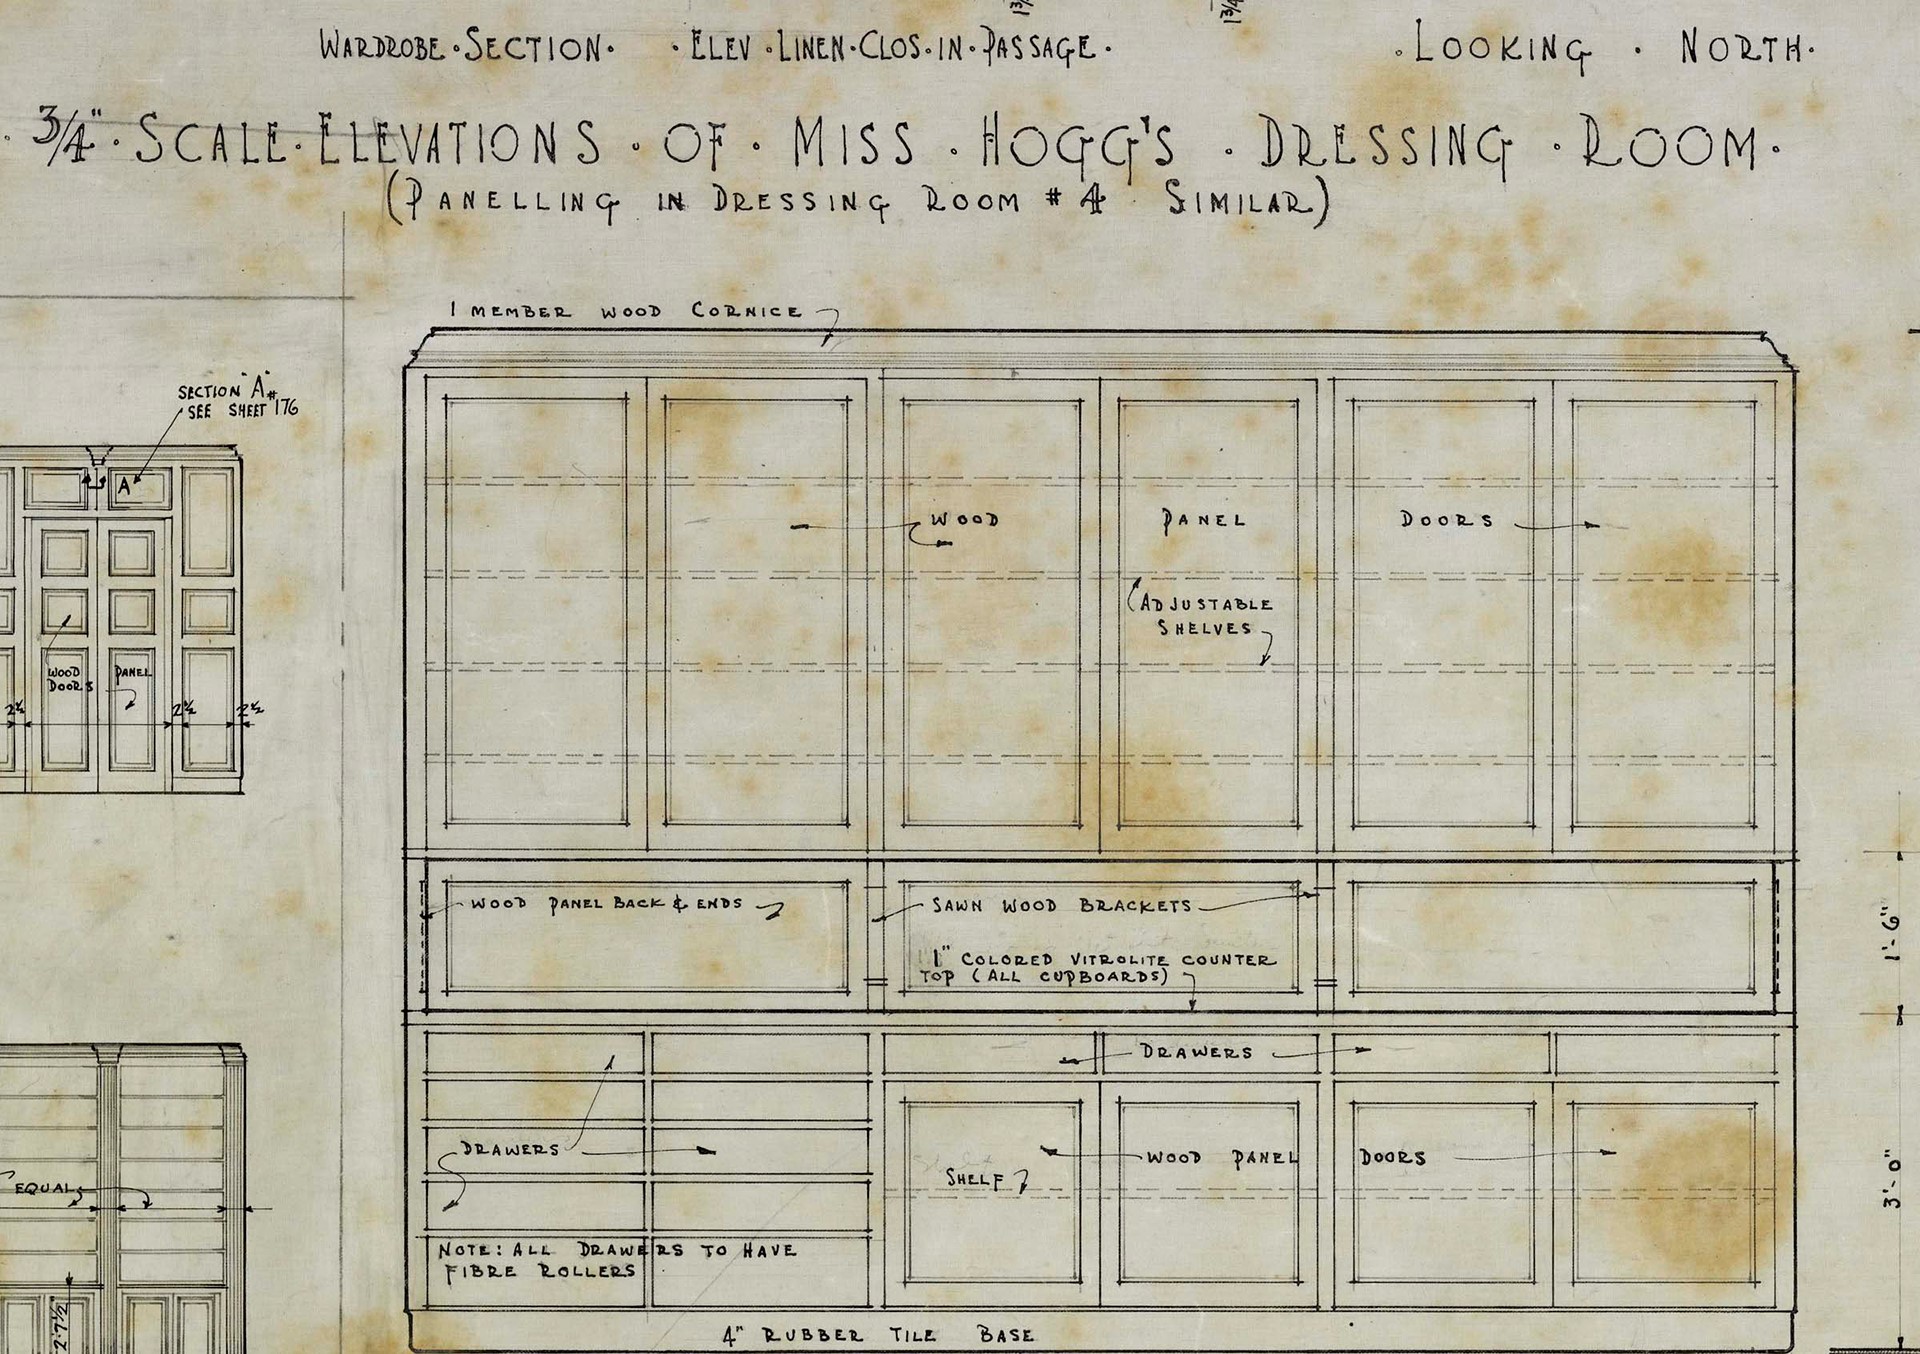 1¾
1¾
WARDROBE·SECTION·
·ELEV·LINEN·CLOS·IN·PASSAGE·
·LOOKING · NORTH·
·3/4"·SCALE·ELEVATIONS·OF·MISS·HOGG'S·DRESSING·ROOM·
(PANELLING IN DRESSING ROOM #4 SIMILAR)
1 MEMBER WOOD CORNICE
SECTION "A"
SEE SHEET #176
A
WOOD
DOORS
PANEL
2½
2½
2½
WOOD PANEL DOORS
ADJUSTABLE
SHELVES
WOOD PANEL BACK & ENDS
SAWN WOOD BRACKETS
1" COLORED VITROLITE COUNTER
TOP (ALL CUPBOARDS)
1'-6"
DRAWERS
DRAWERS
SHELF
WOOD PANEL DOORS
3'-0"
EQUAL
2'-7½"
NOTE: ALL DRAWERS TO HAVE
FIBRE ROLLERS
4" RUBBER TILE BASE